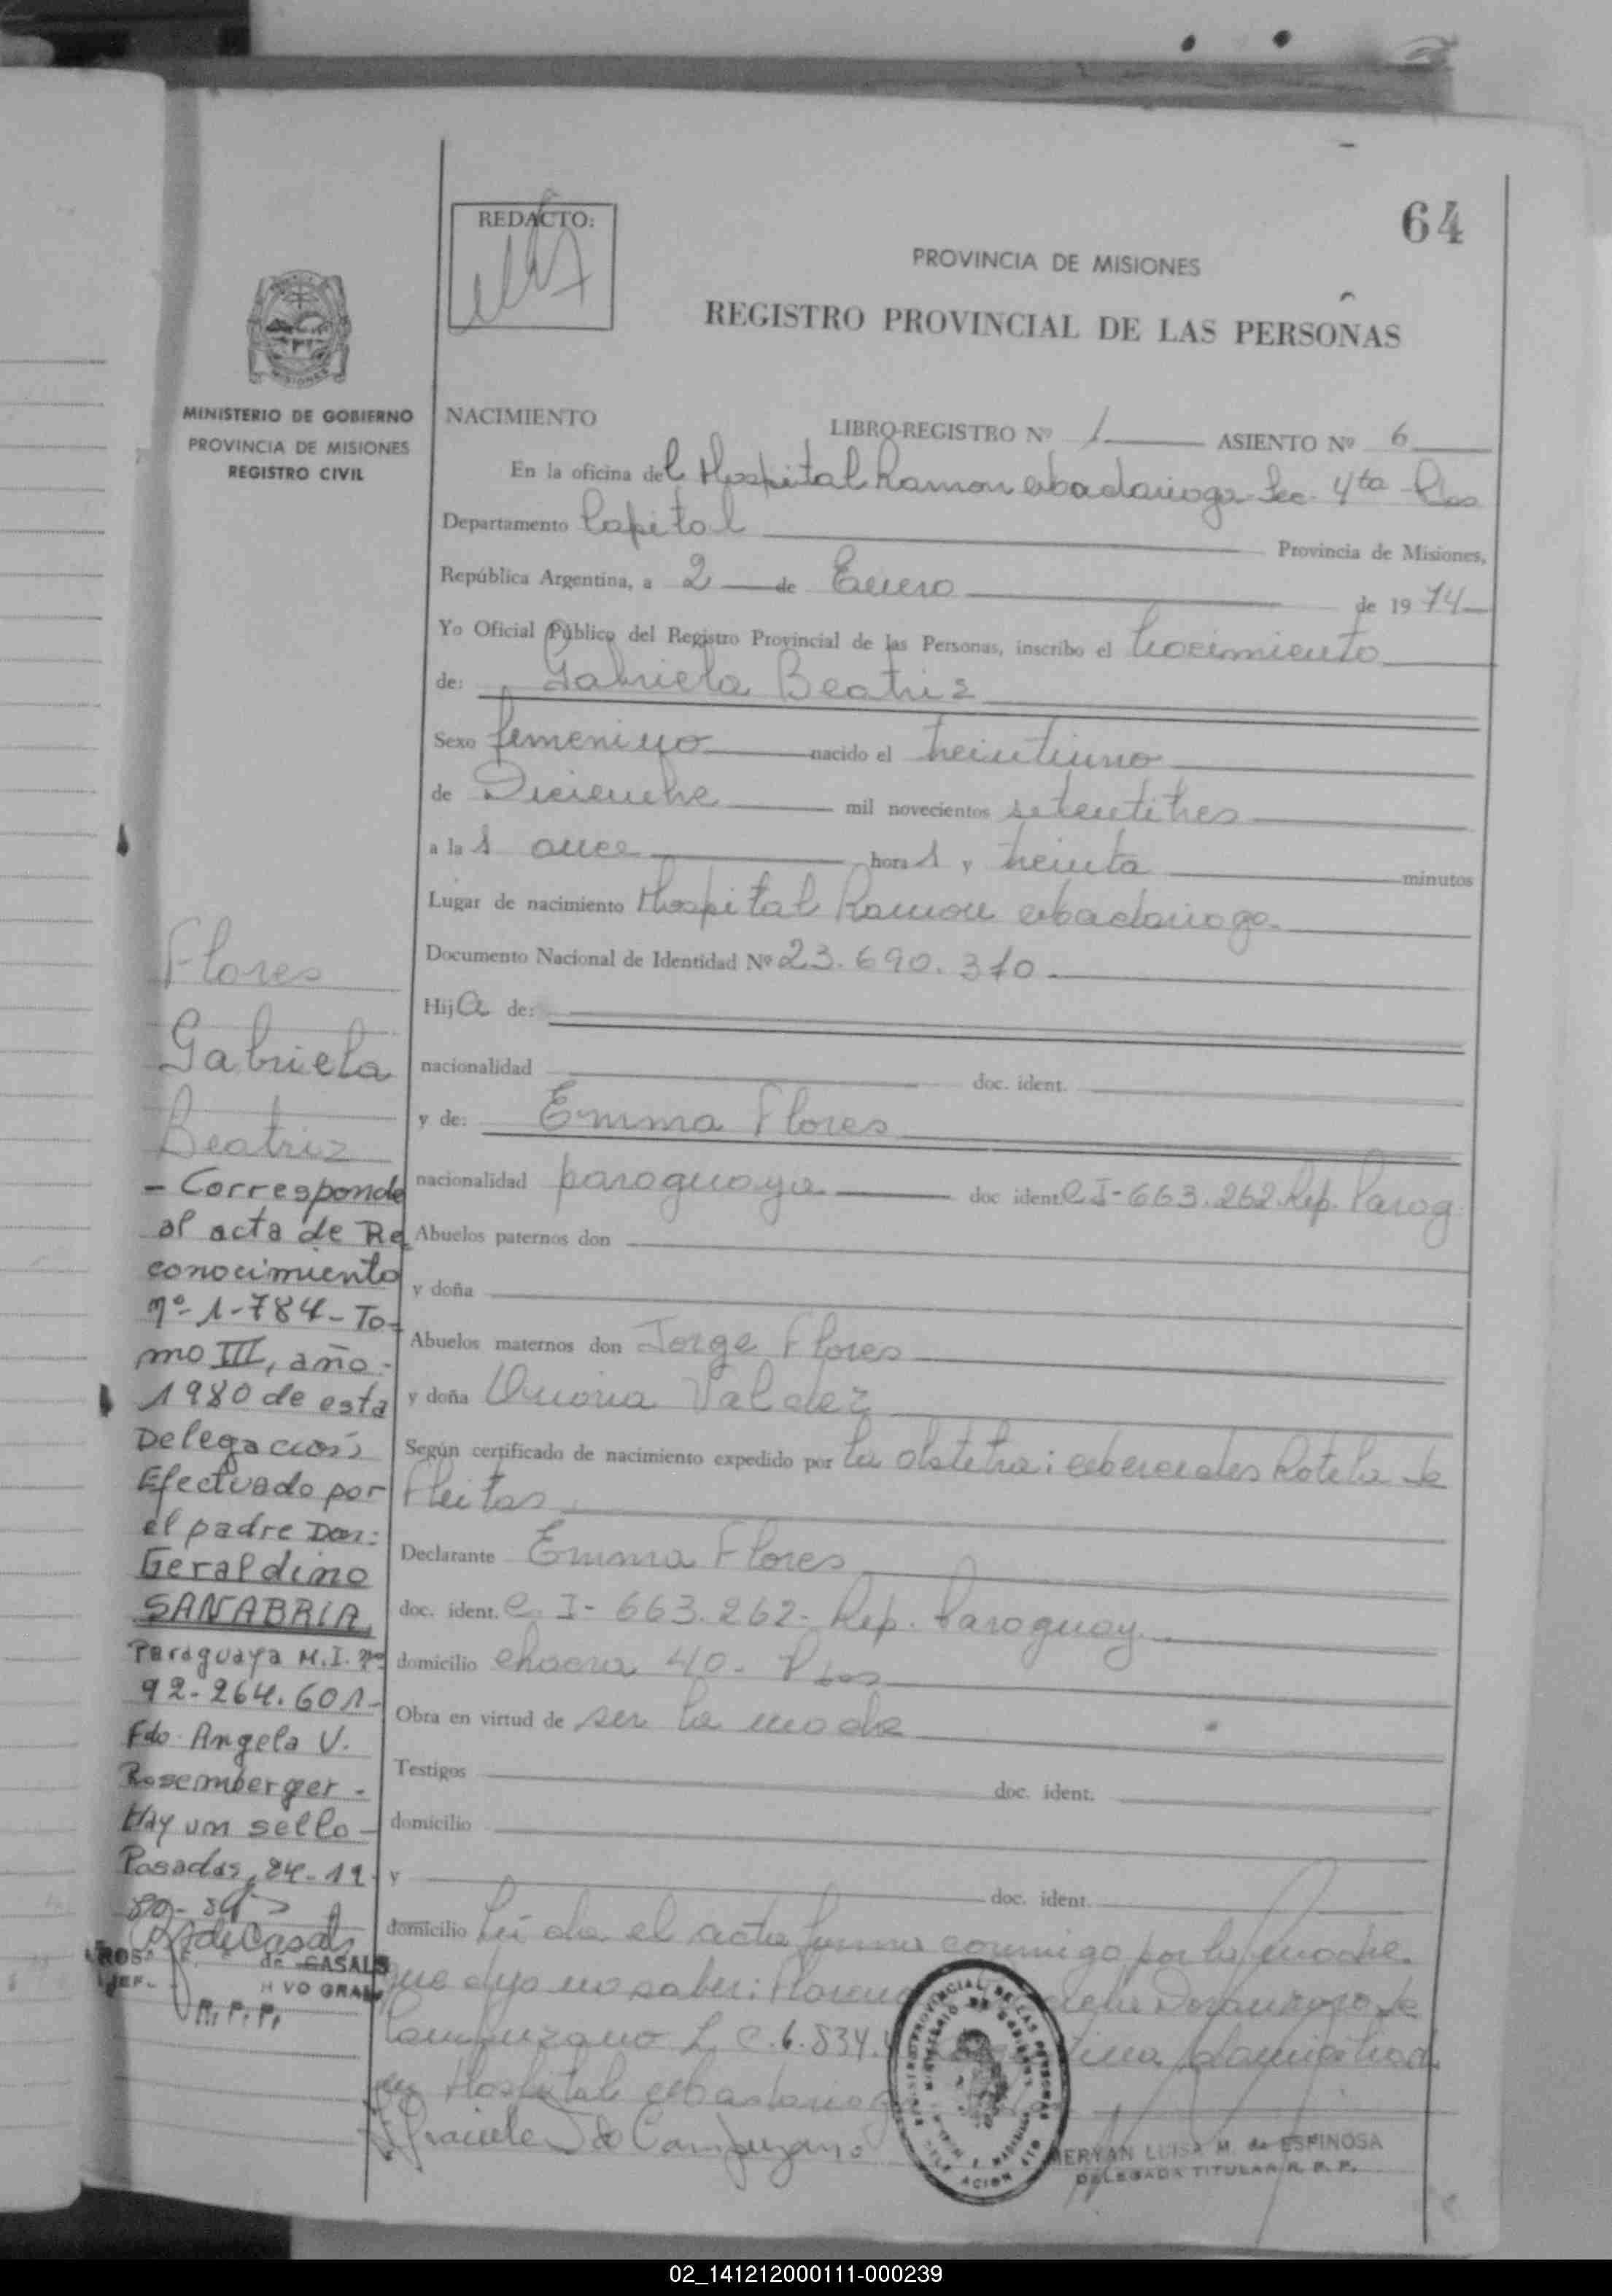 64
REDACTO:
PROVINCIA DE MISIONES
REGISTRO PROVINCIAL DE LAS PERSONAS
MISIONES
MINISTERIO DE GOBIERNO
PROVINCIA DE MISIONES
REGISTRO CIVIL
NACIMIENTO
LIBRO-REGISTRO Nº 1 ASIENTO Nº 6
En la oficina del Hospital Ramon Abadarioga Sec. 4ta Pdas
Departamento Capital Provincia de Misiones,
República Argentina, a 2 de Enero de 1974
Yo Oficial Público del Registro Provincial de las Personas, inscribo el nacimiento
de: Gabriela Beatriz
Sexo femenino nacido el treintiuno
de Diciembre mil novecientos setentitres
a las once horas y treinta minutos
Lugar de nacimiento Hospital Ramon Abadarioga
Documento Nacional de Identidad Nº 23.690.310
Hija de:
nacionalidad doc. ident.
y de: Emma Flores
nacionalidad paraguaya doc ident. C I-663.262 Rep. Parag
Abuelos paternos don
y doña
Abuelos maternos don Jorge Flores
y doña Valdez
Según certificado de nacimiento expedido por la obstetra: Mercedes Rotela de
Fleitas
Declarante Emma Flores
doc. ident. C. I- 663.262- Rep. Paraguay
domicilio chacra 40- Pdas
Obra en virtud de ser la madre
Testigos doc. ident.
domicilio
y doc. ident.
domicilio Leida el acta firma conmigo por la madre
que dijo no saber: de
Campuzano L. C. 6.834. domiciliada
en Hospital Abadarioga
Flores
Gabriela
Beatriz
- Corresponde
al acta de Re
conocimiento
nº 1-784- To-
mo III, año
1980 de esta
Delegación
Efectuado por
el padre Don:
Geraldino
SANABRIA
Paraguaya M.I. nº
92-264.601-
Fdo Angela V.
Rosemberger -
Hay un sello -
Posadas, 24-11
80-
de CASALS
R.P.P.
MERYAN LUISA M. de ESPINOSA
DELEGADA TITULAR R. P. P.
02_141212000111-000239